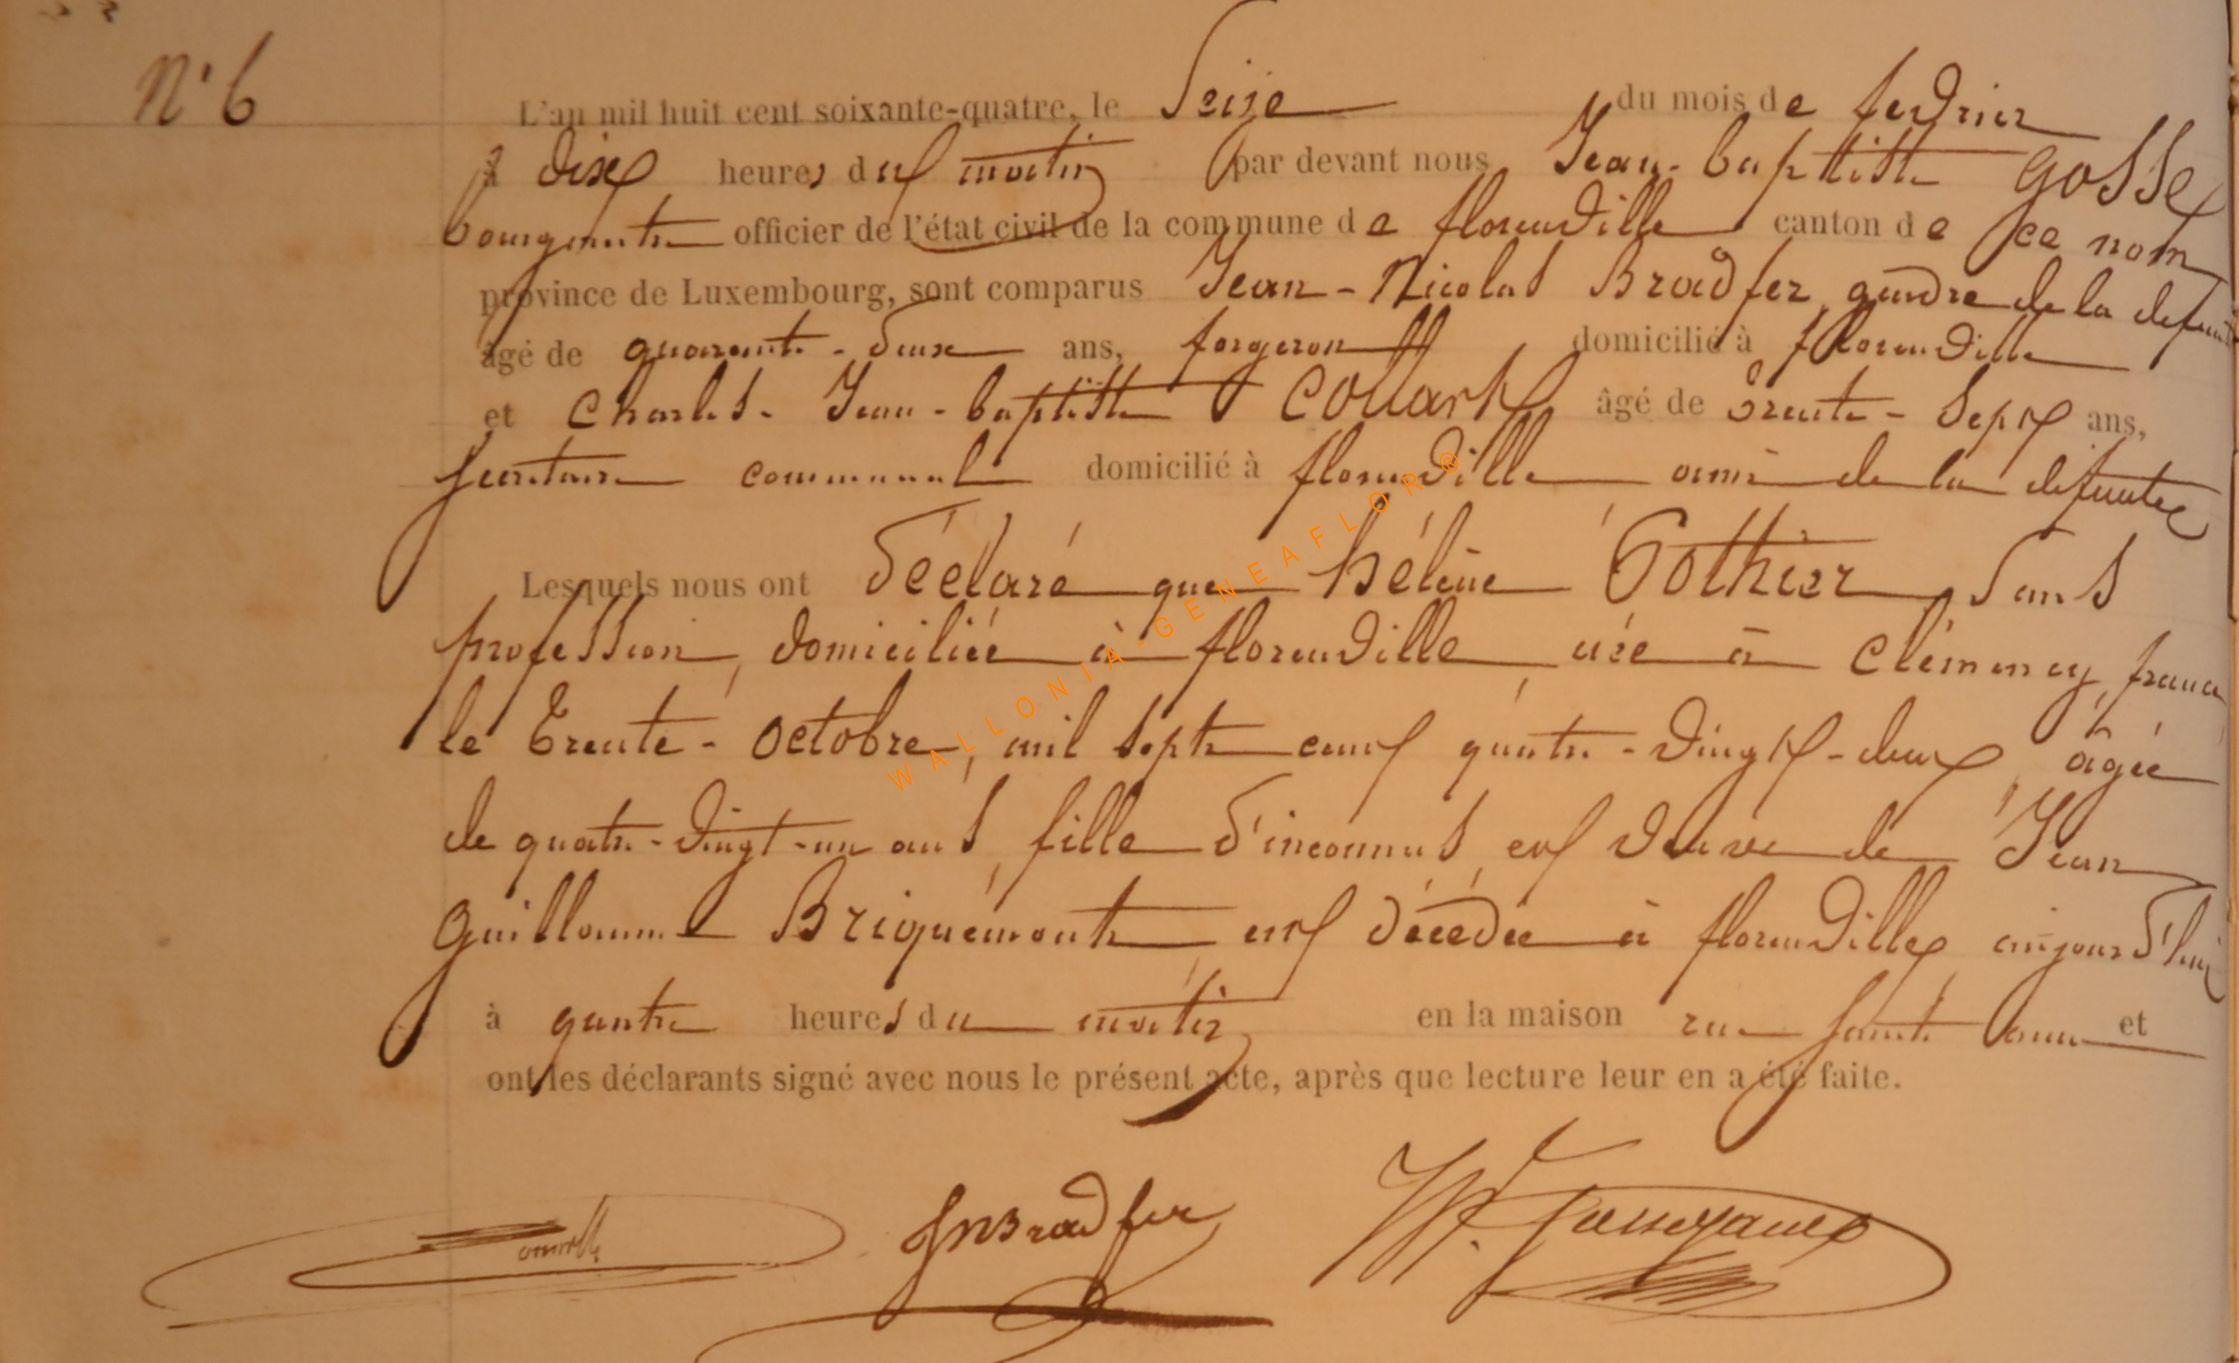 N° 6
L'an mil huit cent soixante-quatre, le Seize du mois de fevrier
à dix heures du matin par devant nous Jean-baptiste Gosse
bourgmestre officier de l'état civil de la commune de florenville canton de ce nom
province de Luxembourg, sont comparus Jean-Nicolas Bradfer, gendre de la defunte
âgé de quarante-deux ans, forgeron domicilié à florenville
et Charles-Jean-baptiste Collart âgé de trente-sept ans,
secretaire communal domicilié à florenville ami de la defunte
Lesquels nous ont déclaré que hélène Gothier, sans
profession, domiciliée à florenville, née à Clémency, france
le trente-octobre, mil sept cent quatre-vingt-deux, âgée
de quatre-vingt-un ans, fille d'inconnus, et veuve de Jean
Guillaume Briquémont, est décédée à florenville, aujourd'hui
à quatre heures du matin en la maison rue sainte anne et
ont les déclarants signé avec nous le présent acte, après que lecture leur en a été faite.
JNBradfer
WALLONIA-GENEAFLOR®